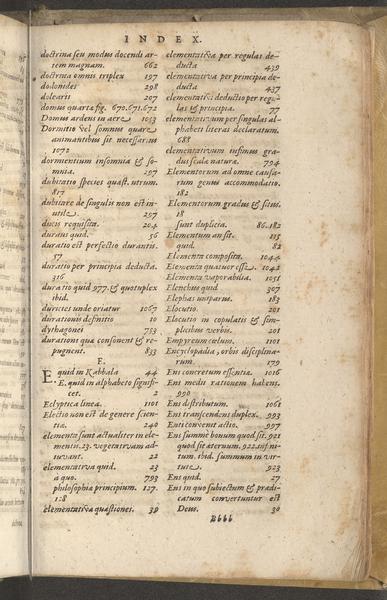 INDEX.
doctrina seu modus docendi ar-
tem magnam. 662
doctrina omnis triplex 197
dolonides 298
dolearis 207
domus quartæ fig. 670.671.672
Domus ardens in aere 1053
Dormitio vel somnus quare
animantibus sit necessarius
1072
dormientium insomnia & so-
mnia. 297
dubitatio species quæst. utrum.
817
dubitare de singulis non est in-
utile. 297
ducis requisita. 204
durans quid. 56
duratio est perfectio durantis.
57
duratio per principia deducta.
316
duratio quid 977. & quotuplex
ibid.
durities unde oriatur 1067
durationis definitio 10
dythagones 753
durationi qua consonent & re-
pugnent. 833
E.
E. quid in Kabbala 44
E. quid in alphabeto signifi-
cet. 2
Ecliptica linea. 1101
Electio non est de genere scien-
tiæ. 240
elementa sunt actualiter in ele-
mentis. 23. vegetativam ad-
iuvant. 22
elementativa quid. 23
a quo. 793
philosophia principium. 127.
128
elementativa quæstiones. 39
elementativa per regulas de-
ducta 439
elementativa per principia de-
ducta 437
elementativi deductio per regu-
las & principia. 77
elementativum per singulas al-
phabeti literas declaratum.
688
elementativum infimus gra-
dus scalæ naturæ. 794
Elementorum ad omne causa-
rum genus accommodatio.
182
Elementorum gradus & situs.
18
sunt duplicia. 86.182
Elementum an sit. 115
quid. 82
Elementa composita. 1044
Elementa quatuor esse. 1042
Elementa vaporabilia. 1051
Elenchus quid 307
Elephas uniparus. 183
Elocutio. 201
Elocutio in copulatis & sim-
plicibus verbis. 201
Empyreum cœlum. 1101
Encyclopædia, orbis disciplina-
rum. 179
Ens concretum essentia. 1016
Ens medii rationem habens.
990
Ens distributum. 1061
Ens transcendens duplex. 993
Enti convenit actio. 997
Ens summè bonum quod sit. 921
quod sit æternum. 922. infini-
tum. ibid. summum in vir-
tute. 923
Ens quid. 27
Ens in quo subiectum & prædi-
catum convertuntur est
Deus. 30
Bbbb